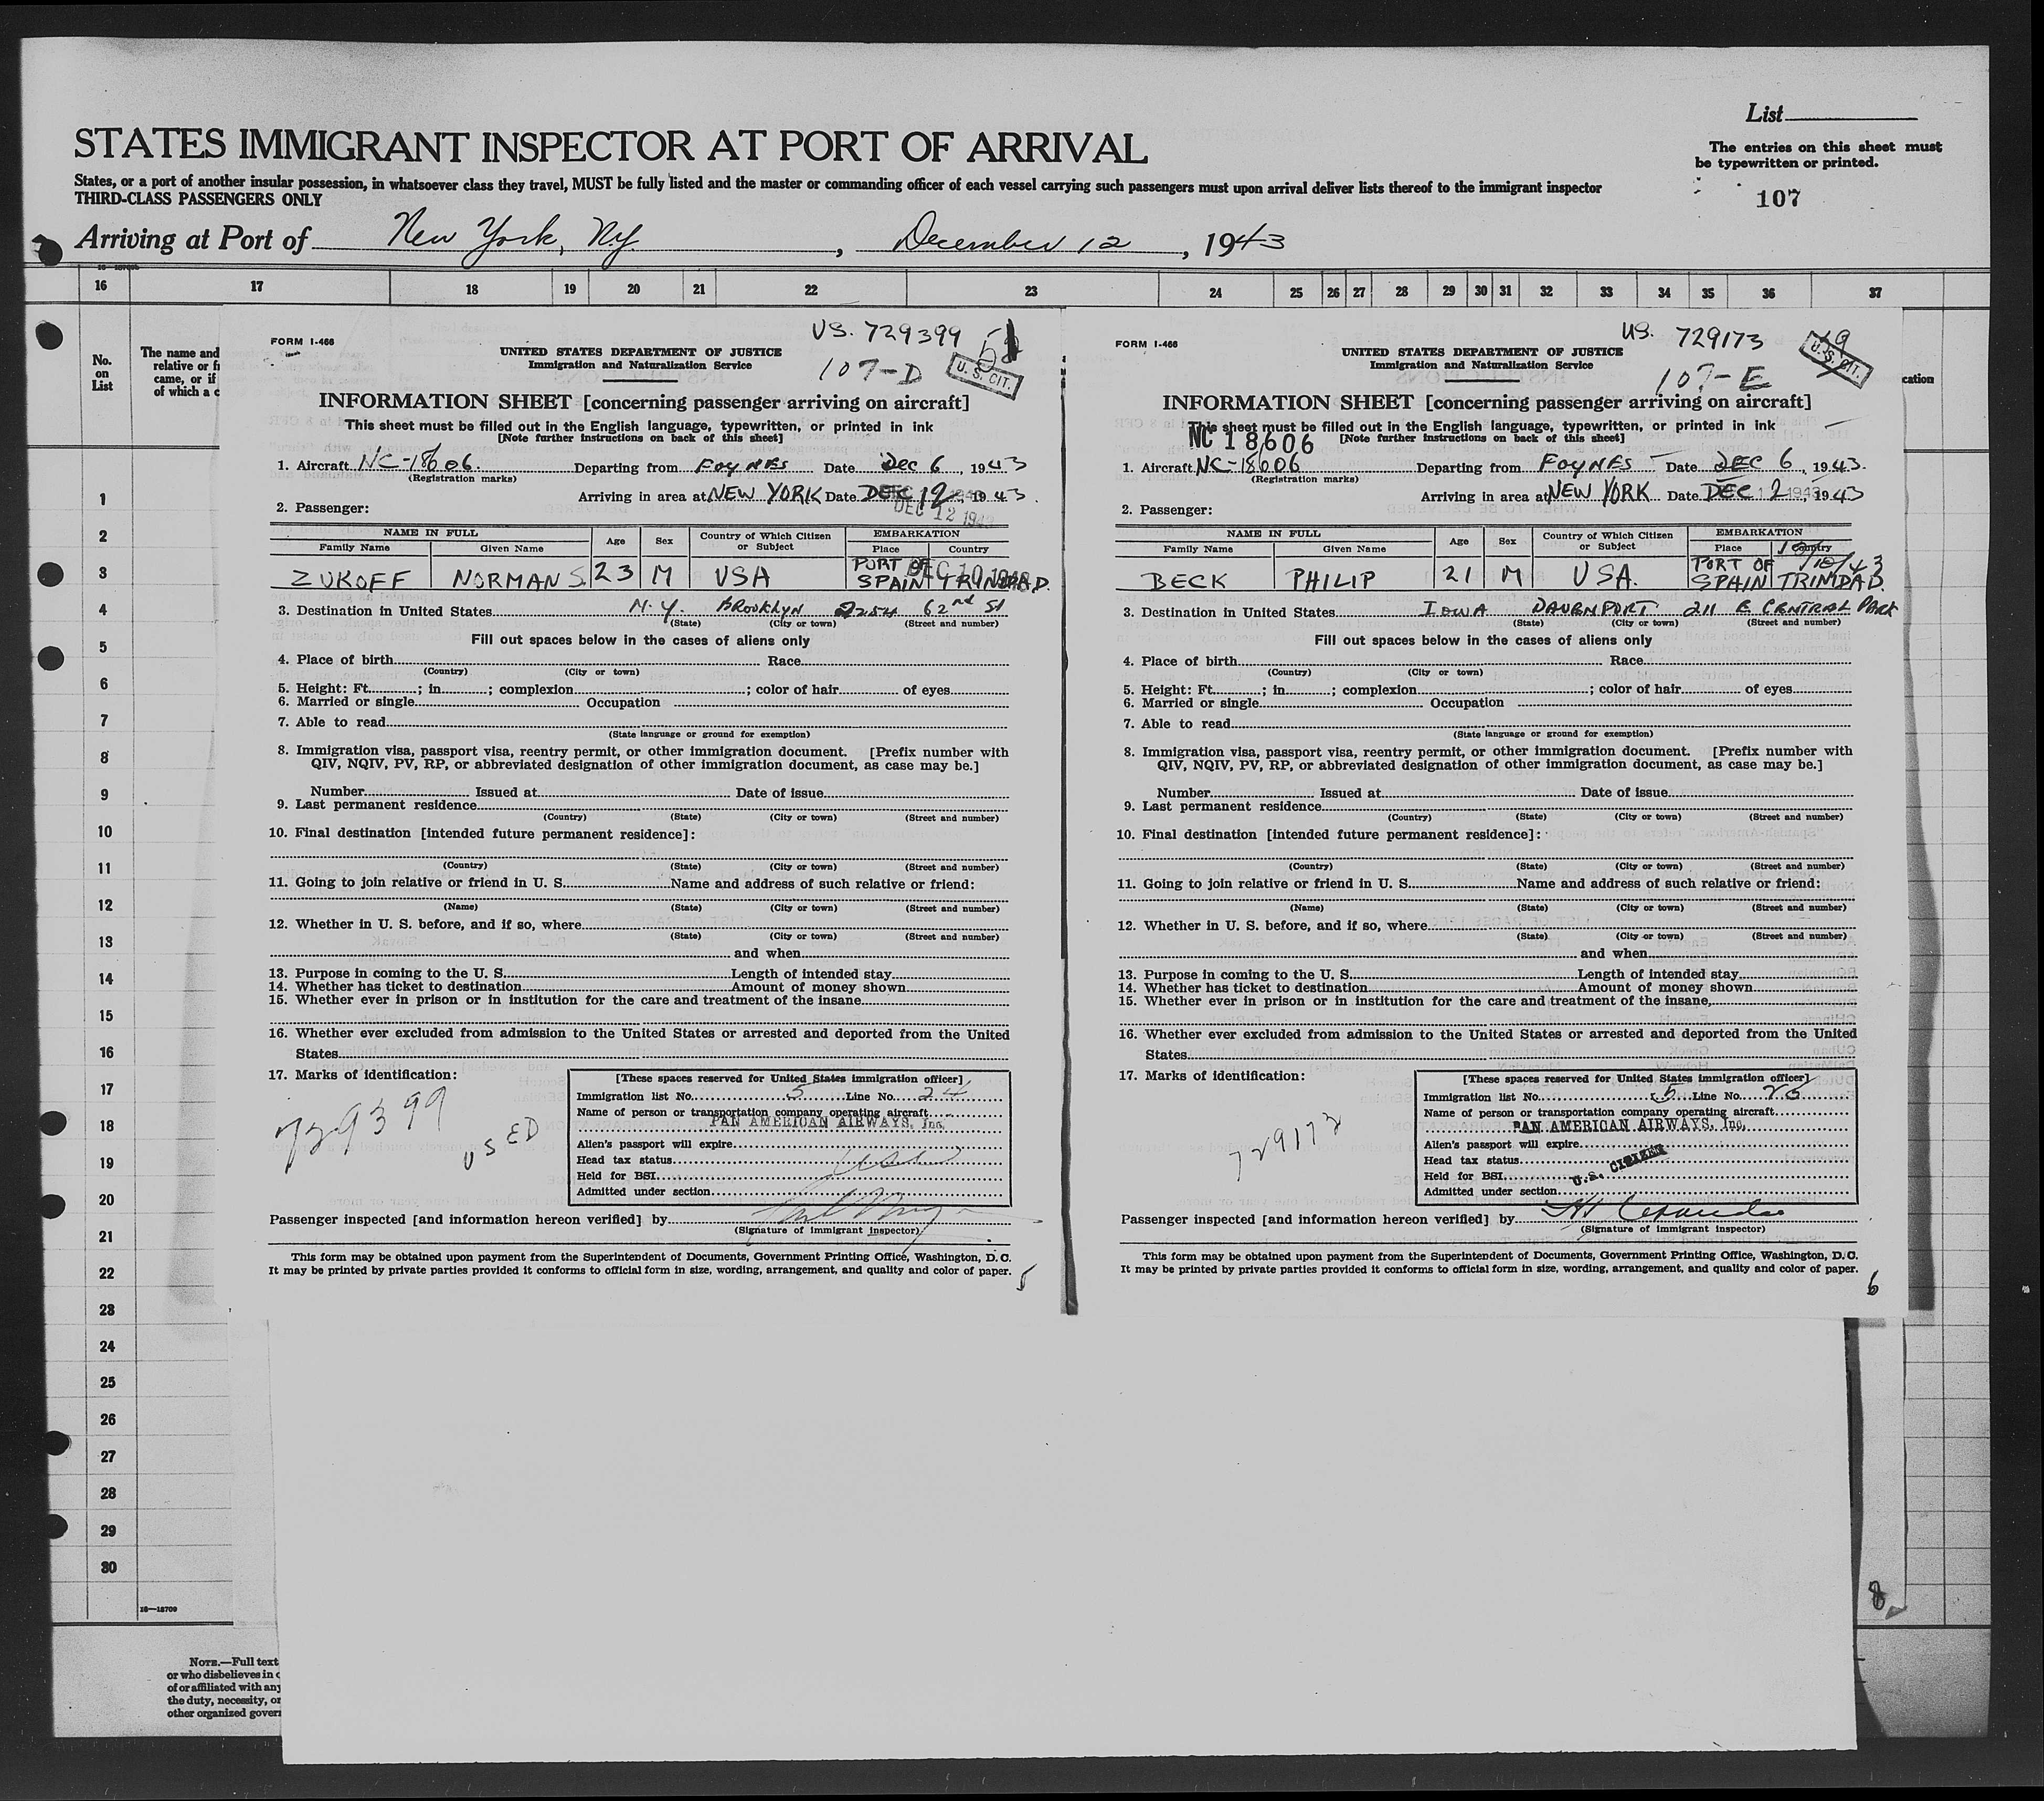 List
STATES IMMIGRANT INSPECTOR AT PORT OF ARRIVAL
The entries on this sheet must
be typewritten or printed.
States, or a port of another insular possession, in whatsoever class they travel, MUST be fully listed and the master or commanding officer of each vessel carrying such passengers must upon arrival deliver lists thereof to the immigrant inspector
THIRD-CLASS PASSENGERS ONLY
107
Arriving at Port of New York, N.Y. , December 12 , 1943
16 17 18 19 20 21 22 23 24 25 26 27 28 29 30 31 32 33 34 35 36 37
No.
on
List
The name and
relative or f
came, or if
of which a c
1
2
3
4
5
6
7
8
9
10
11
12
13
14
15
16
17
18
19
20
21
22
23
24
25
26
27
28
29
30
16—18709
NOTE.—Full text
or who disbelieves in
of or affiliated with any
the duty, necessity, or
other organized gover
US. 729399
FORM I-466
UNITED STATES DEPARTMENT OF JUSTICE
Immigration and Naturalization Service
107-D
U.S. CIT.
INFORMATION SHEET [concerning passenger arriving on aircraft]
This sheet must be filled out in the English language, typewritten, or printed in ink
[Note further instructions on back of this sheet]
1. Aircraft NC-18606. Departing from FOYNES Date Dec 6, 1943
(Registration marks)
Arriving in area at NEW YORK Date DEC 12, 1943.
DEC 12 1943
2. Passenger:
NAME IN FULL Age Sex Country of Which Citizen or Subject EMBARKATION
Family Name Given Name Place Country
ZUKOFF NORMAN S. 23 M USA PORT OF SPAIN TRINIDAD.
DEC 10 1943
3. Destination in United States N.Y. BROOKLYN 2254 62nd St
(State) (City or town) (Street and number)
Fill out spaces below in the cases of aliens only
4. Place of birth Race
(Country) (City or town)
5. Height: Ft. ; in. ; complexion ; color of hair of eyes
6. Married or single Occupation
7. Able to read
(State language or ground for exemption)
8. Immigration visa, passport visa, reentry permit, or other immigration document. [Prefix number with
QIV, NQIV, PV, RP, or abbreviated designation of other immigration document, as case may be.]
Number Issued at Date of issue
9. Last permanent residence
(Country) (State) (City or town) (Street and number)
10. Final destination [intended future permanent residence]:
(Country) (State) (City or town) (Street and number)
11. Going to join relative or friend in U. S. Name and address of such relative or friend:
(Name) (State) (City or town) (Street and number)
12. Whether in U. S. before, and if so, where
(State) (City or town) (Street and number)
and when
13. Purpose in coming to the U. S. Length of intended stay
14. Whether has ticket to destination Amount of money shown
15. Whether ever in prison or in institution for the care and treatment of the insane
16. Whether ever excluded from admission to the United States or arrested and deported from the United
States
17. Marks of identification:
729399
USED
[These spaces reserved for United States immigration officer]
Immigration list No. 5 Line No. 24
Name of person or transportation company operating aircraft
PAN AMERICAN AIRWAYS, Inc.
Alien's passport will expire
Head tax status
Held for BSI
Admitted under section
Passenger inspected [and information hereon verified] by
(Signature of immigrant inspector)
This form may be obtained upon payment from the Superintendent of Documents, Government Printing Office, Washington, D. C.
It may be printed by private parties provided it conforms to official form in size, wording, arrangement, and quality and color of paper.
5
US. 729173
FORM I-466
UNITED STATES DEPARTMENT OF JUSTICE
Immigration and Naturalization Service
107-E
U.S. CIT.
cation
INFORMATION SHEET [concerning passenger arriving on aircraft]
This sheet must be filled out in the English language, typewritten, or printed in ink
NC 18606 [Note further instructions on back of this sheet]
1. Aircraft NC-18606 Departing from FOYNES Date DEC 6, 1943.
(Registration marks)
Arriving in area at NEW YORK Date DEC 12 1943
2. Passenger:
NAME IN FULL Age Sex Country of Which Citizen or Subject EMBARKATION
Family Name Given Name Place Country
BECK PHILIP 21 M USA. PORT OF SPAIN TRINIDAD.
3. Destination in United States IOWA DAVENPORT 211 E CENTRAL PARK
(State) (City or town) (Street and number)
Fill out spaces below in the cases of aliens only
4. Place of birth Race
(Country) (City or town)
5. Height: Ft. ; in. ; complexion ; color of hair of eyes
6. Married or single Occupation
7. Able to read
(State language or ground for exemption)
8. Immigration visa, passport visa, reentry permit, or other immigration document. [Prefix number with
QIV, NQIV, PV, RP, or abbreviated designation of other immigration document, as case may be.]
Number Issued at Date of issue
9. Last permanent residence
(Country) (State) (City or town) (Street and number)
10. Final destination [intended future permanent residence]:
(Country) (State) (City or town) (Street and number)
11. Going to join relative or friend in U. S. Name and address of such relative or friend:
(Name) (State) (City or town) (Street and number)
12. Whether in U. S. before, and if so, where
(State) (City or town) (Street and number)
and when
13. Purpose in coming to the U. S. Length of intended stay
14. Whether has ticket to destination Amount of money shown
15. Whether ever in prison or in institution for the care and treatment of the insane,
16. Whether ever excluded from admission to the United States or arrested and deported from the United
States
17. Marks of identification:
729173
[These spaces reserved for United States immigration officer]
Immigration list No. 5 Line No.
Name of person or transportation company operating aircraft
PAN AMERICAN AIRWAYS, Inc.
Alien's passport will expire
Head tax status
U.S. CITIZEN
Held for BSI
Admitted under section
Passenger inspected [and information hereon verified] by
(Signature of immigrant inspector)
This form may be obtained upon payment from the Superintendent of Documents, Government Printing Office, Washington, D. C.
It may be printed by private parties provided it conforms to official form in size, wording, arrangement, and quality and color of paper.
6
8